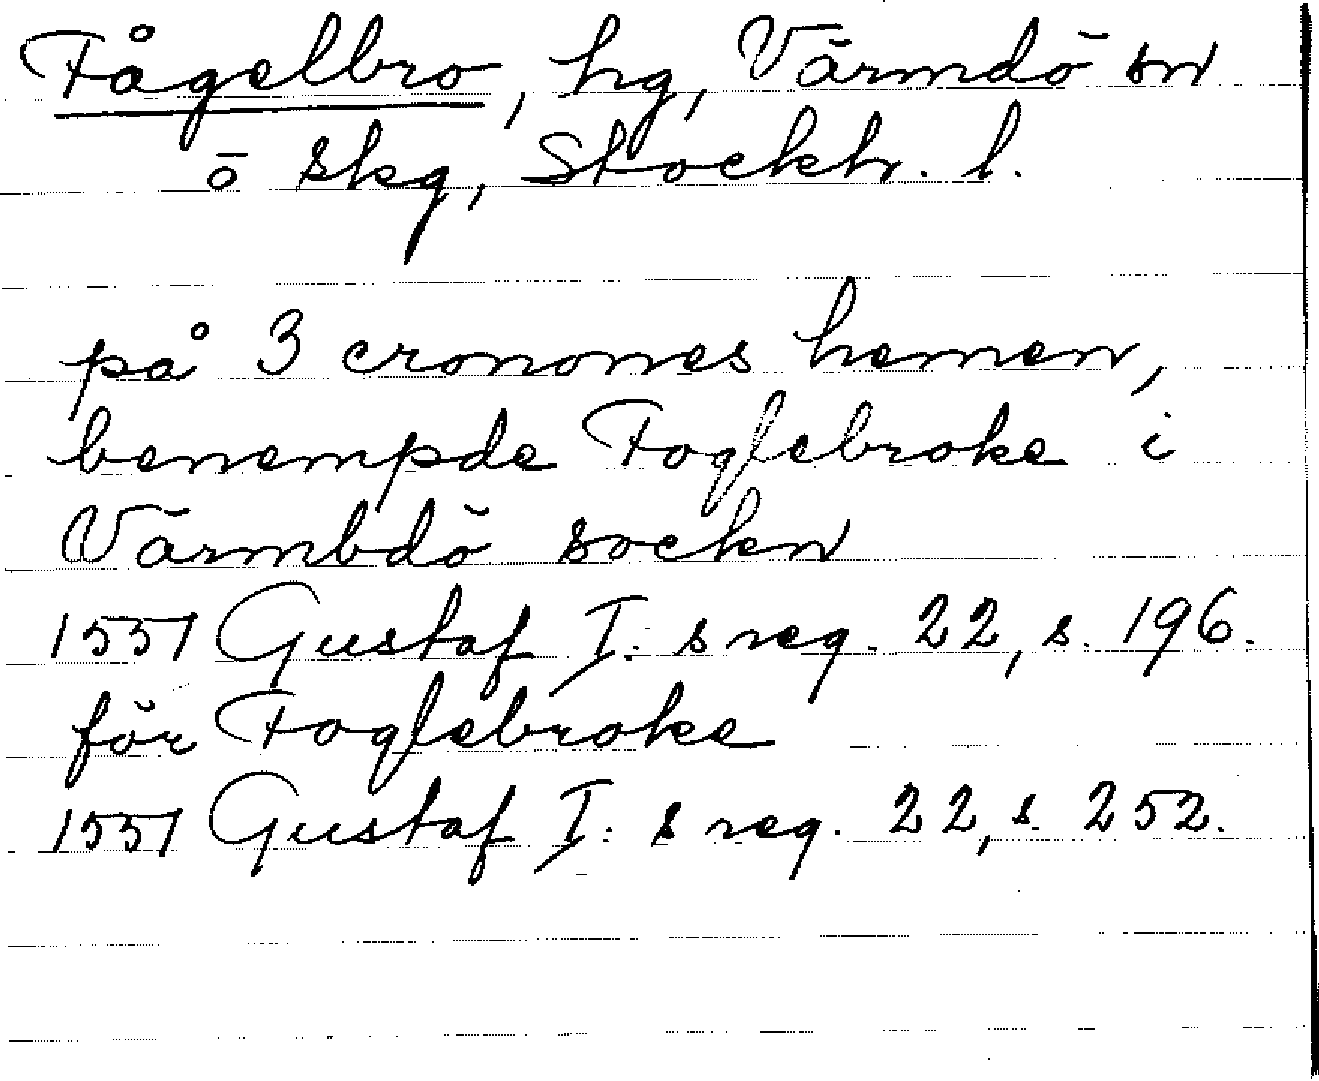 Fågelbro, hg, Värmdö sn
ö skg, Stockh. l.
på 3 cronones hemen,
benempde Foglebroke i
Värmbdö sockn
1551 Gustaf I:s reg. 22, s. 196.
för Foglebroke
1551 Gustaf I:s reg. 22, s. 252.